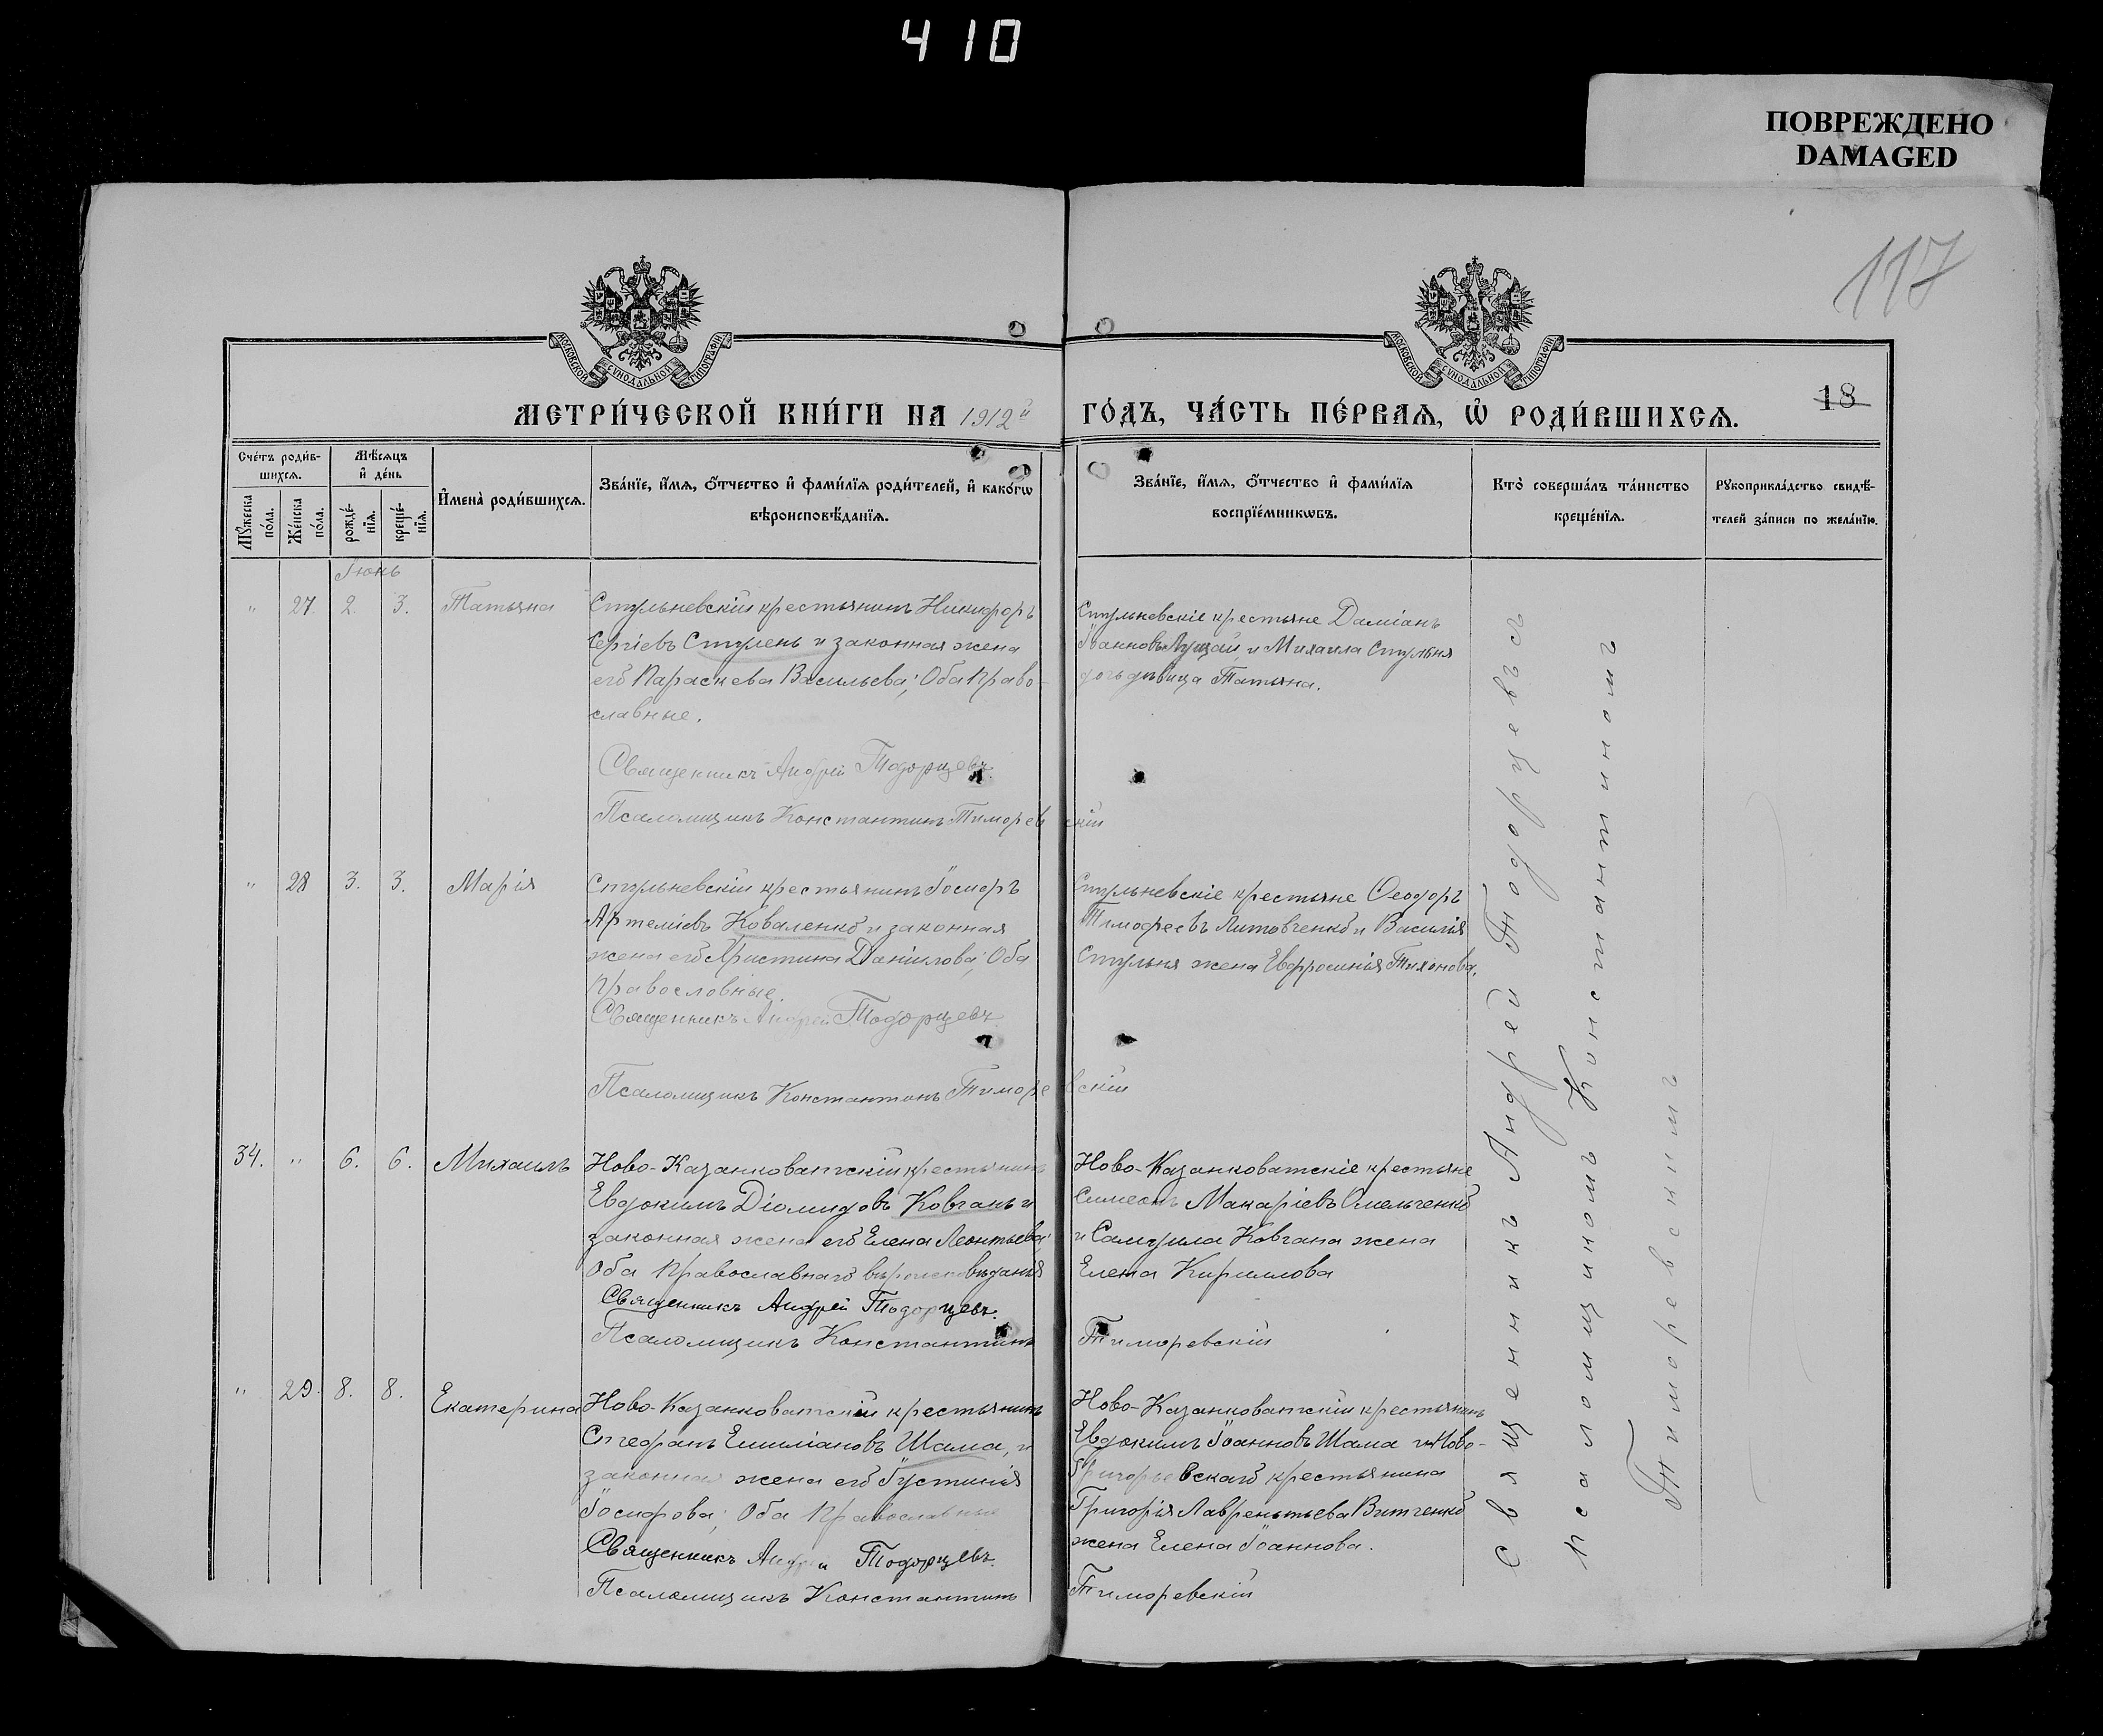 410
ПОВРЕЖДЕНО
DAMAGED
117
18
МОСКОВСКОЙ СѴНОДАЛЬНОЙ ТИПОГРАФІИ
МОСКОВСКОЙ СѴНОДАЛЬНОЙ ТИПОГРАФІИ
МЕТРИ́ЧЕСКОЙ КНИ́ГИ НА 1912й ГО́ДЪ, ЧА́СТЬ ПЕ́РВАЯ, Ѡ҆ РОДИ́ВШИХСЯ.
Сче́тъ роди́в-
шихся.
Мѣ́сяцъ
и҆ де́нь
Мꙋ́жеска по́ла.
Же́нска по́ла.
рожде́-
нїя.
креще́-
нїя.
И҆мена̀ роди́вшихся.
Зва́нїе, и҆́мя, ѻ҆́тчество и҆ фами́лїя роди́телей, и҆ како́гѡ
вѣроисповѣ́данїя.
Зва́нїе, и҆́мя, ѻ҆́тчество и҆ фами́лїя
воспрїе́мникѡвъ.
Кто̀ соверша́лъ та́инство
креще́нїя.
Рꙋкоприкла́дство свидѣ́-
телей за́писи по жела́нїю.
Іюнь
" 27. 2. 3. Татьяна
Стульневскій крестьянинъ Никифоръ
Сергіевъ Стулень и законная жена
его Параскева Васильева; Оба право-
славные.
Священникъ Андрей Тодорцевъ
Псаломщикъ Константинъ Тиморевскій
Стульневскіе крестьяне Даміанъ
Іоанновъ Лущай и Михаила Стульня
дочь дѣвица Татьяна.
" 28 3. 3. Марія
Стульневскій крестьянинъ
Артеміевъ Коваленко и законная
жена его Христина Даніилова; Оба
православные.
Священникъ Андрей Тодорцевъ
Псаломщикъ Константинъ Тиморевскій
Стульневскіе крестьяне Ѳеодоръ
Тимофеевъ Литовченко и Василія
Стульня жена Евфросинія Тихонова.
34. " 6. 6. Михаилъ
Ново-Казанковатскій крестьянинъ
Евдокимъ Діомидовъ Ковганъ и
законная жена его Елена Леонтьева;
Оба православнаго вѣроисповѣданія
Священникъ Андрей Тодорцевъ.
Псаломщикъ Константинъ Тиморевскій
Ново-Казанковатскіе крестьяне
Симеонъ Макаріевъ Омельченко
и Самуила Ковгана жена
Елена Кириллова
" 29. 8. 8. Екатерина
Ново-Казанковатскій крестьянинъ
Стефанъ Емиліановъ Шама, и
законная жена его Іустинія
Іосифова; Оба православные
Священникъ Андрей Тодорцевъ.
Псаломщикъ Константинъ Тиморевскій
Ново-Казанковатскій крестьянинъ
Евдокимъ Іоанновъ Шама и Ново-
Григорьевскаго крестьянина
Григорія Лаврентьева Витченко
жена Елена Іоаннова.
Священникъ Андрей Тодорцевъ съ
псаломщикомъ Константиномъ
Тиморевскимъ